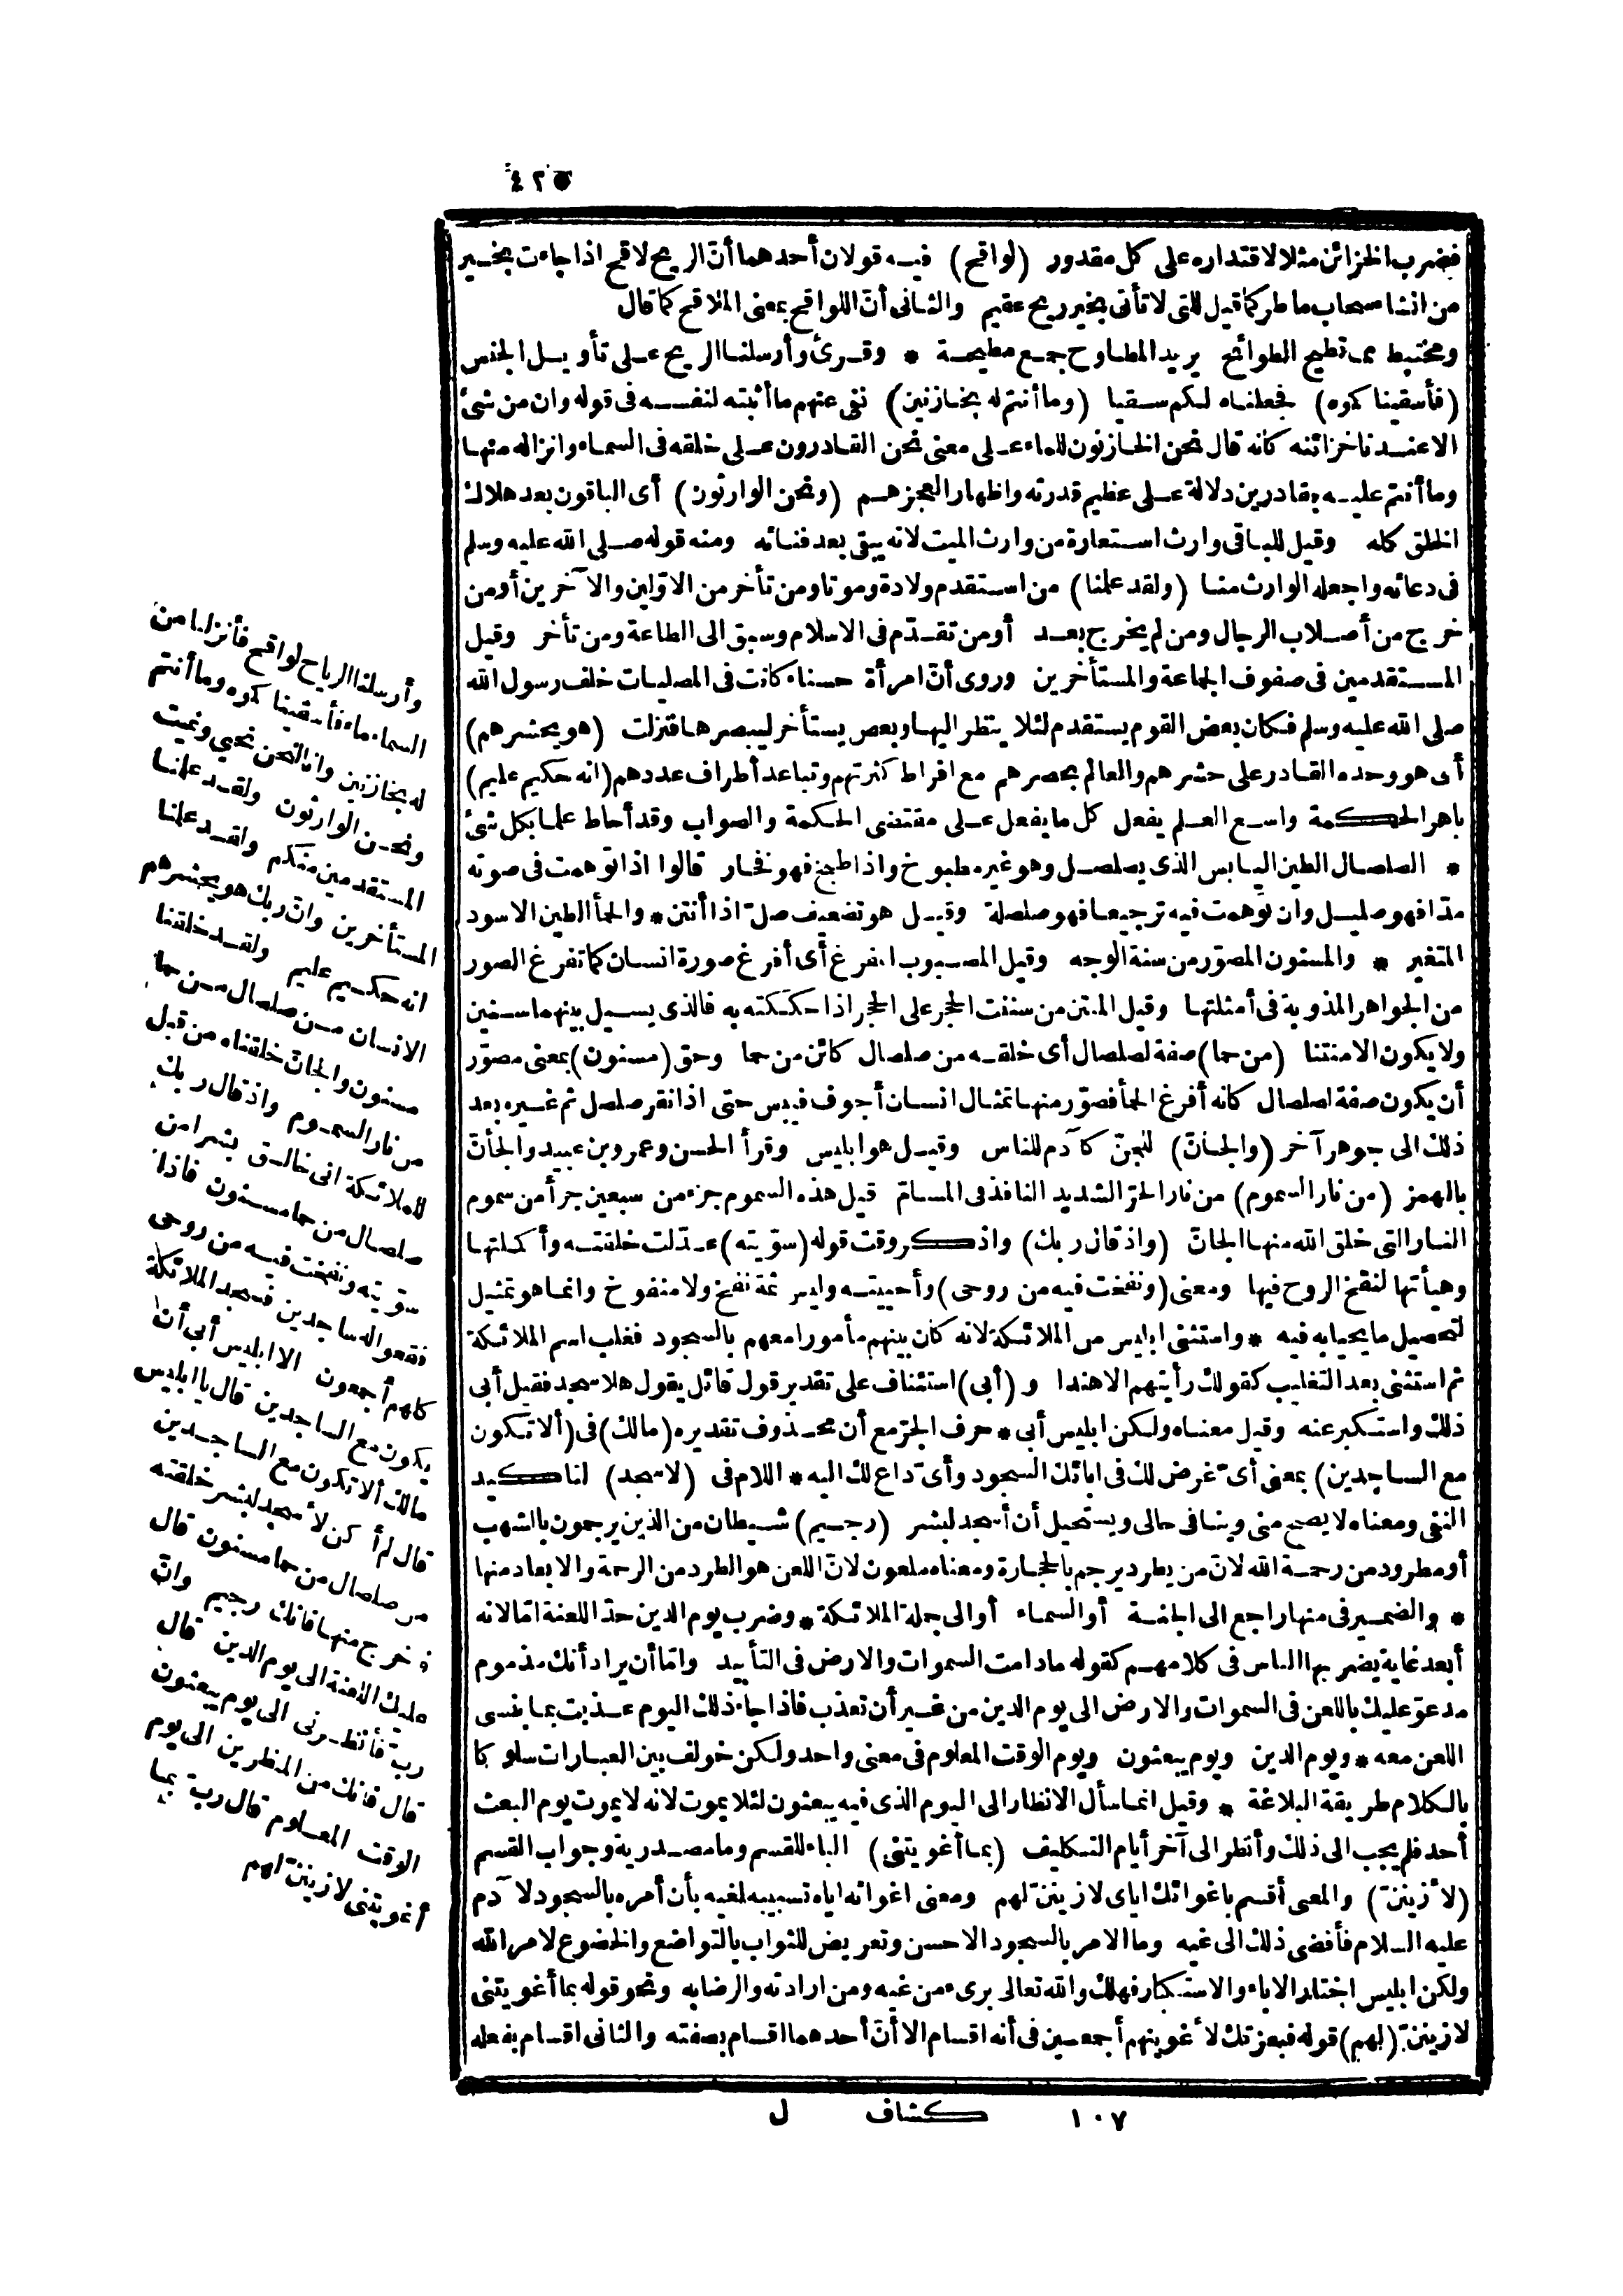 ٤٢٥
فضرب الخزائن مثلا لاقتداره على كل مقدور (لواقح) فيه قولان أحدهما أنّ الريح لاقح اذا جاءت بخير
من انشاء سحاب ماطر كما قيل للتى لا تأتى بخير ريح عقيم والثانى أنّ اللواقح بمعنى الملاقح كما قال
ومختبط مما تطيح الطوائح يريد المطاوح جمع مطيحة * وقرئ وأرسلنا الريح على تأويل الجنس
(فأسقيناكموه) فجعلناه لكم سقيا (وما أنتم له بخازنين) نفى عنهم ما أثبته لنفسه فى قوله وان من شئ
الا عندنا خزائنه كانه قال نحن الخازنون للماء على معنى نحن القادرون على خلقه فى السماء وانزاله منها
وما أنتم عليه بقادرين دلالة على عظيم قدرته واظهارا لعجزهم (ونحن الوارثون) أى الباقون بعد هلاك
الخلق كله وقيل للباقى وارث استعارة من وارث الميت لانه يبقى بعد فنائه ومنه قوله صلى الله عليه وسلم
فى دعائه واجعله الوارث منا (ولقد علمنا) من استقدم ولادة وموتا ومن تأخر من الاوّلين والآخرين أو من
خرج من أصلاب الرجال ومن لم يخرج بعد أو من تقدّم فى الاسلام وسبق الى الطاعة ومن تأخر وقيل
المستقدمين فى صفوف الجماعة والمستأخرين وروى أنّ امرأة حسناء كانت فى المصليات خلف رسول الله
صلى الله عليه وسلم فكان بعض القوم يستقدم لئلا ينظر اليها وبعض يستأخر ليبصرها فنزلت (هو يحشرهم)
أى هو وحده القادر على حشرهم والعالم بحصرهم مع افراط كثرتهم وتباعد أطراف عددهم (انه حكيم عليم)
باهر الحكمة واسع العلم يفعل كل ما يفعل على مقتضى الحكمة والصواب وقد أحاط علما بكل شئ
* الصلصال الطين اليابس الذى يصلصل وهو غير مطبوخ واذا طبخ فهو فخار قالوا اذا توهمت فى صوته
مدّا فهو صليل وان توهمت فيه ترجيعا فهو صلصلة وقيل هو تضعيف صلّ اذا أنتن * والحمأ الطين الاسود
المتغير * والمسنون المصوّر من سنة الوجه وقيل المصبوب المفرغ أى أفرغ صورة انسان كما تفرغ الصور
من الجواهر المذوبة فى أمثلتها وقيل المنتن من سننت الحجر على الحجر اذا حككته به فالذى يسيل بينهما سنين
ولا يكون الا منتنا (من حما) صفة لصلصال أى خلقه من صلصال كائن من حما وحق (مسنون) بمعنى مصوّر
أن يكون صفة لصلصال كانه أفرغ الحمأ فصوّر منها تمثال انسان أجوف فيبس حتى اذا نقر صلصل ثم غيره بعد
ذلك الى جوهر آخر (والجانّ) للجنّ كآدم للناس وقيل هو ابليس وقرأ الحسن وعمرو بن عبيد والجأنّ
بالهمز (من نار السموم) من نار الحرّ الشديد النافذ فى المسامّ قيل هذه السموم جزء من سبعين جزأ من سموم
النار التى خلق الله منها الجانّ (واذ قال ربك) واذكر وقت قوله (سوّيته) عدّلت خلقته وأكملتها
وهيأتها لنفخ الروح فيها ومعنى (ونفخت فيه من روحى) وأحييته وليس ثمة نفخ ولا منفوخ وانما هو تمثيل
لتحصيل ما يحيا به فيه * واستثنى ابليس من الملائكة لانه كان بينهم مأمورا معهم بالسجود فغلب اسم الملائكة
ثم استثنى بعد التغليب كقولك رأيتهم الا هندا و (أبى) استئناف على تقدير قول قائل يقول هلا سجد فقيل أبى
ذلك واستكبر عنه وقيل معناه ولكن ابليس أبى * حرف الجرّ مع أن محذوف تقديره (مالك) فى (ألا تكون
مع الساجدين) بمعنى أىّ غرض لك فى ابائك السجود وأىّ داع لك اليه * اللام فى (لاسجد) لتاكيد
النفى ومعناه لا يصح منى وينافى حالى ويستحيل أن أسجد لبشر (رجيم) شيطان من الذين يرجمون بالشهب
أو مطرود من رحمة الله لانّ من يطرد يرجم بالحجارة ومعناه ملعون لانّ اللعن هو الطرد من الرحمة والابعاد منها
* والضمير فى منها راجع الى الجنة أو السماء أو الى جملة الملائكة * وضرب يوم الدين حدّا للعنة امّا لانه
أبعد غاية يضربها الناس فى كلامهم كقوله ما دامت السموات والارض فى التأبيد وامّا أن يراد أنك مذموم
مدعوّ عليك باللعن فى السموات والارض الى يوم الدين من غير أن تعذب فاذا جاء ذلك اليوم عذبت بما ينسى
اللعن معه * ويوم الدين ويوم يبعثون ويوم الوقت المعلوم فى معنى واحد ولكن خولف بين العبارات سلوكا
بالكلام طريقة البلاغة * وقيل انما سأل الانظار الى اليوم الذى فيه يبعثون لئلا يموت لانه لا يموت يوم البعث
أحد فلم يجب الى ذلك وأنظر الى آخر أيام التكليف (بما أغويتنى) الباء للقسم وما مصدرية وجواب القسم
(لأزيننّ) والمعنى أقسم باغوائك اياى لازيننّ لهم ومعنى اغوائه اياه تسبيبه لغيه بأن أمره بالسجود لآدم
عليه السلام فأفضى ذلك الى غيه وما الامر بالسجود الا حسن وتعريض للثواب بالتواضع والخضوع لامر الله
ولكن ابليس اختار الاباء والاستكبار فهلك والله تعالى برىء من غيه ومن ارادته والرضا به ونحو قوله بما أغويتنى
لازيننّ (لهم) قوله فبعزتك لأغوينهم أجمعين فى أنه اقسام الا أنّ أحدهما اقسام بصفته والثانى اقسام بفعله
وأرسلنا الرياح لواقح فأنزلنا من
السماء ماء فأسقيناكموه وما أنتم
له بخازنين وانا لنحن نحيي ونميت
ونحن الوارثون ولقد علمنا
المستقدمين منكم ولقد علمنا
المستأخرين وانّ ربك هو يحشرهم
انه حكيم عليم ولقد خلقنا
الانسان من صلصال من حما
مسنون والجانّ خلقناه من قبل
من نار السموم واذ قال ربك
للملائكة انى خالق بشرا من
صلصال من حما مسنون فاذا
سوّيته ونفخت فيه من روحى
فقعوا له ساجدين فسجد الملائكة
كلهم أجمعون الا ابليس أبى أن
يكون مع الساجدين قال يا ابليس
مالك ألا تكون مع الساجدين
قال لم أكن لأسجد لبشر خلقته
من صلصال من حما مسنون قال
فاخرج منها فانك رجيم وانّ
عليك اللعنة الى يوم الدين قال
ربّ فأنظرنى الى يوم يبعثون
قال فانك من المنظرين الى يوم
الوقت المعلوم قال ربّ بما
أغويتنى لازيننّ لهم
١٠٧ كشاف ل